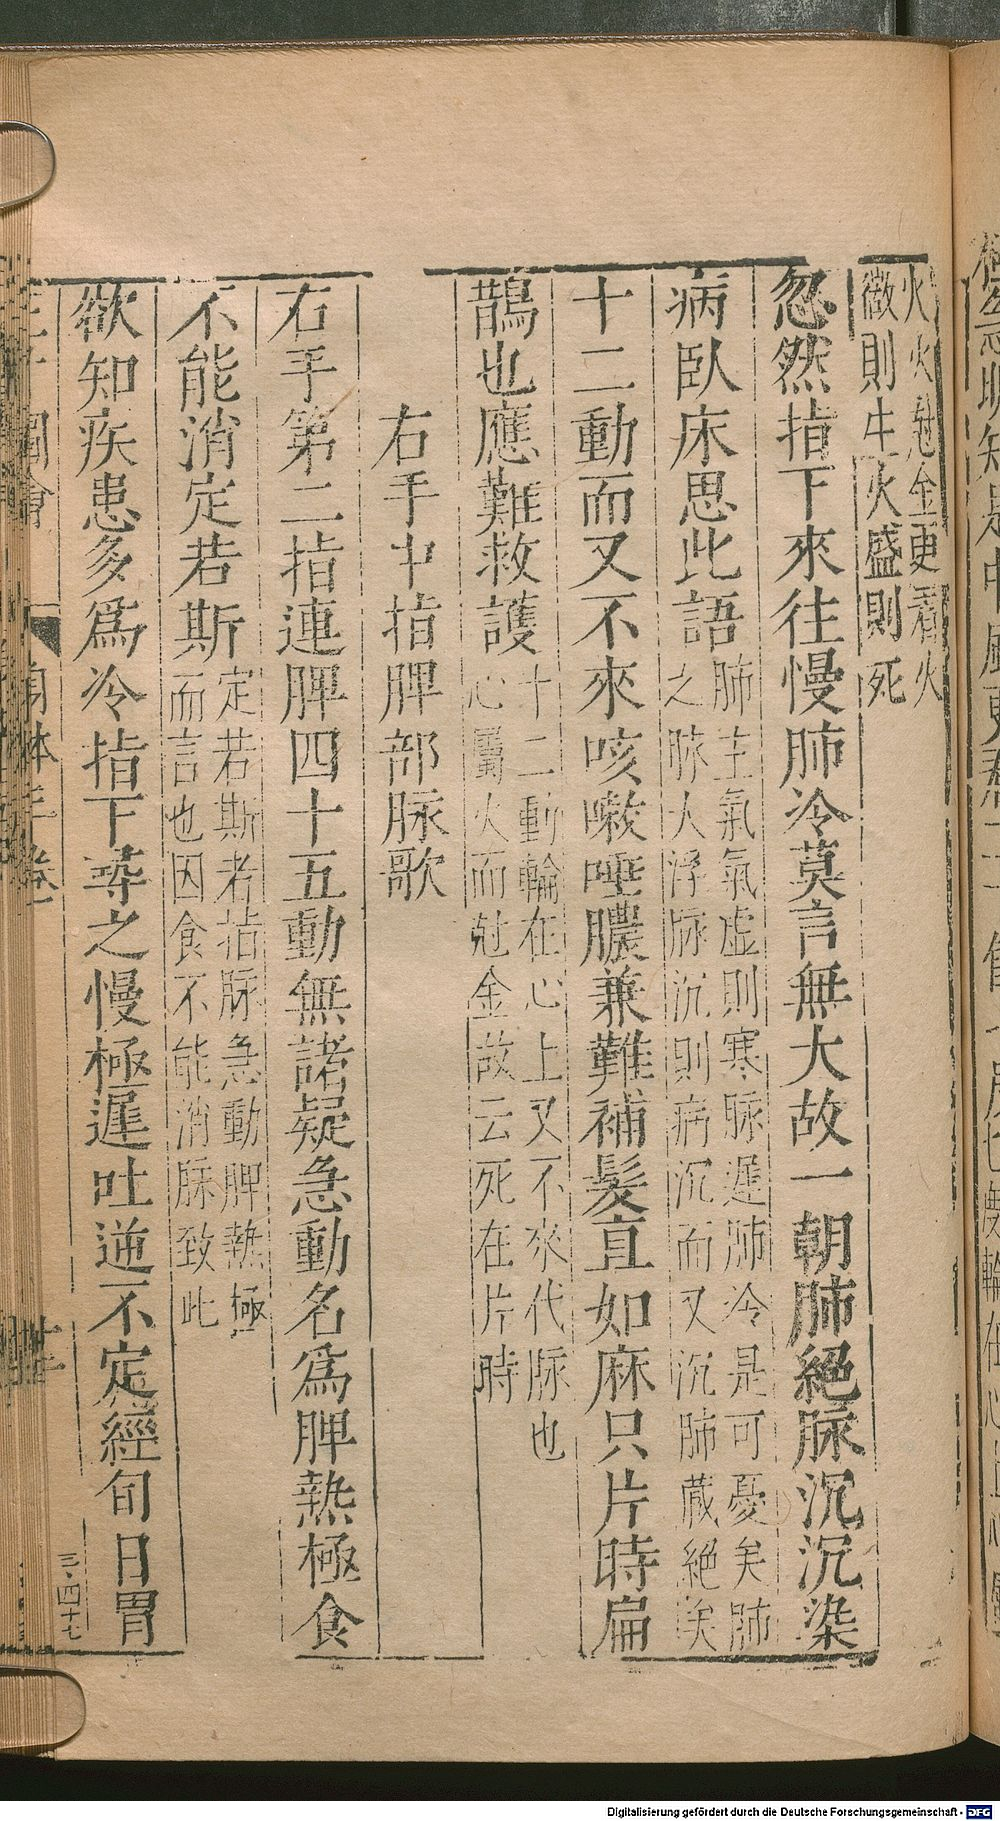 火火尅金更看火
微則生火盛則死
忽然指下來往慢肺冷莫言無大故一朝肺絕脉沉沉染
病臥床思此語
肺主氣氣虚則寒脉遲肺冷是可憂矣肺
之脉人浮脉沉則病沉而又沉肺藏絕矣
十二動而又不來咳嗽唾膿兼難補髮直如麻只片時扁
鵲也應難救護
十二動輪在心上又不來代脉也
心屬火而尅金故云死在片時
右手中指脾部脉歌
右手第二指連脾四十五動無諸疑急動名爲脾熱極食
不能消定若斯
定若斯者指脉急動脾熱極
而言也因食不能消脉致此
欲知疾患多爲冷指下尋之慢極遲吐逆不定經旬日胃
三·四十七
三才圖會
身體二卷
Digitalisierung gefördert durch die Deutsche Forschungsgemeinschaft - DFG